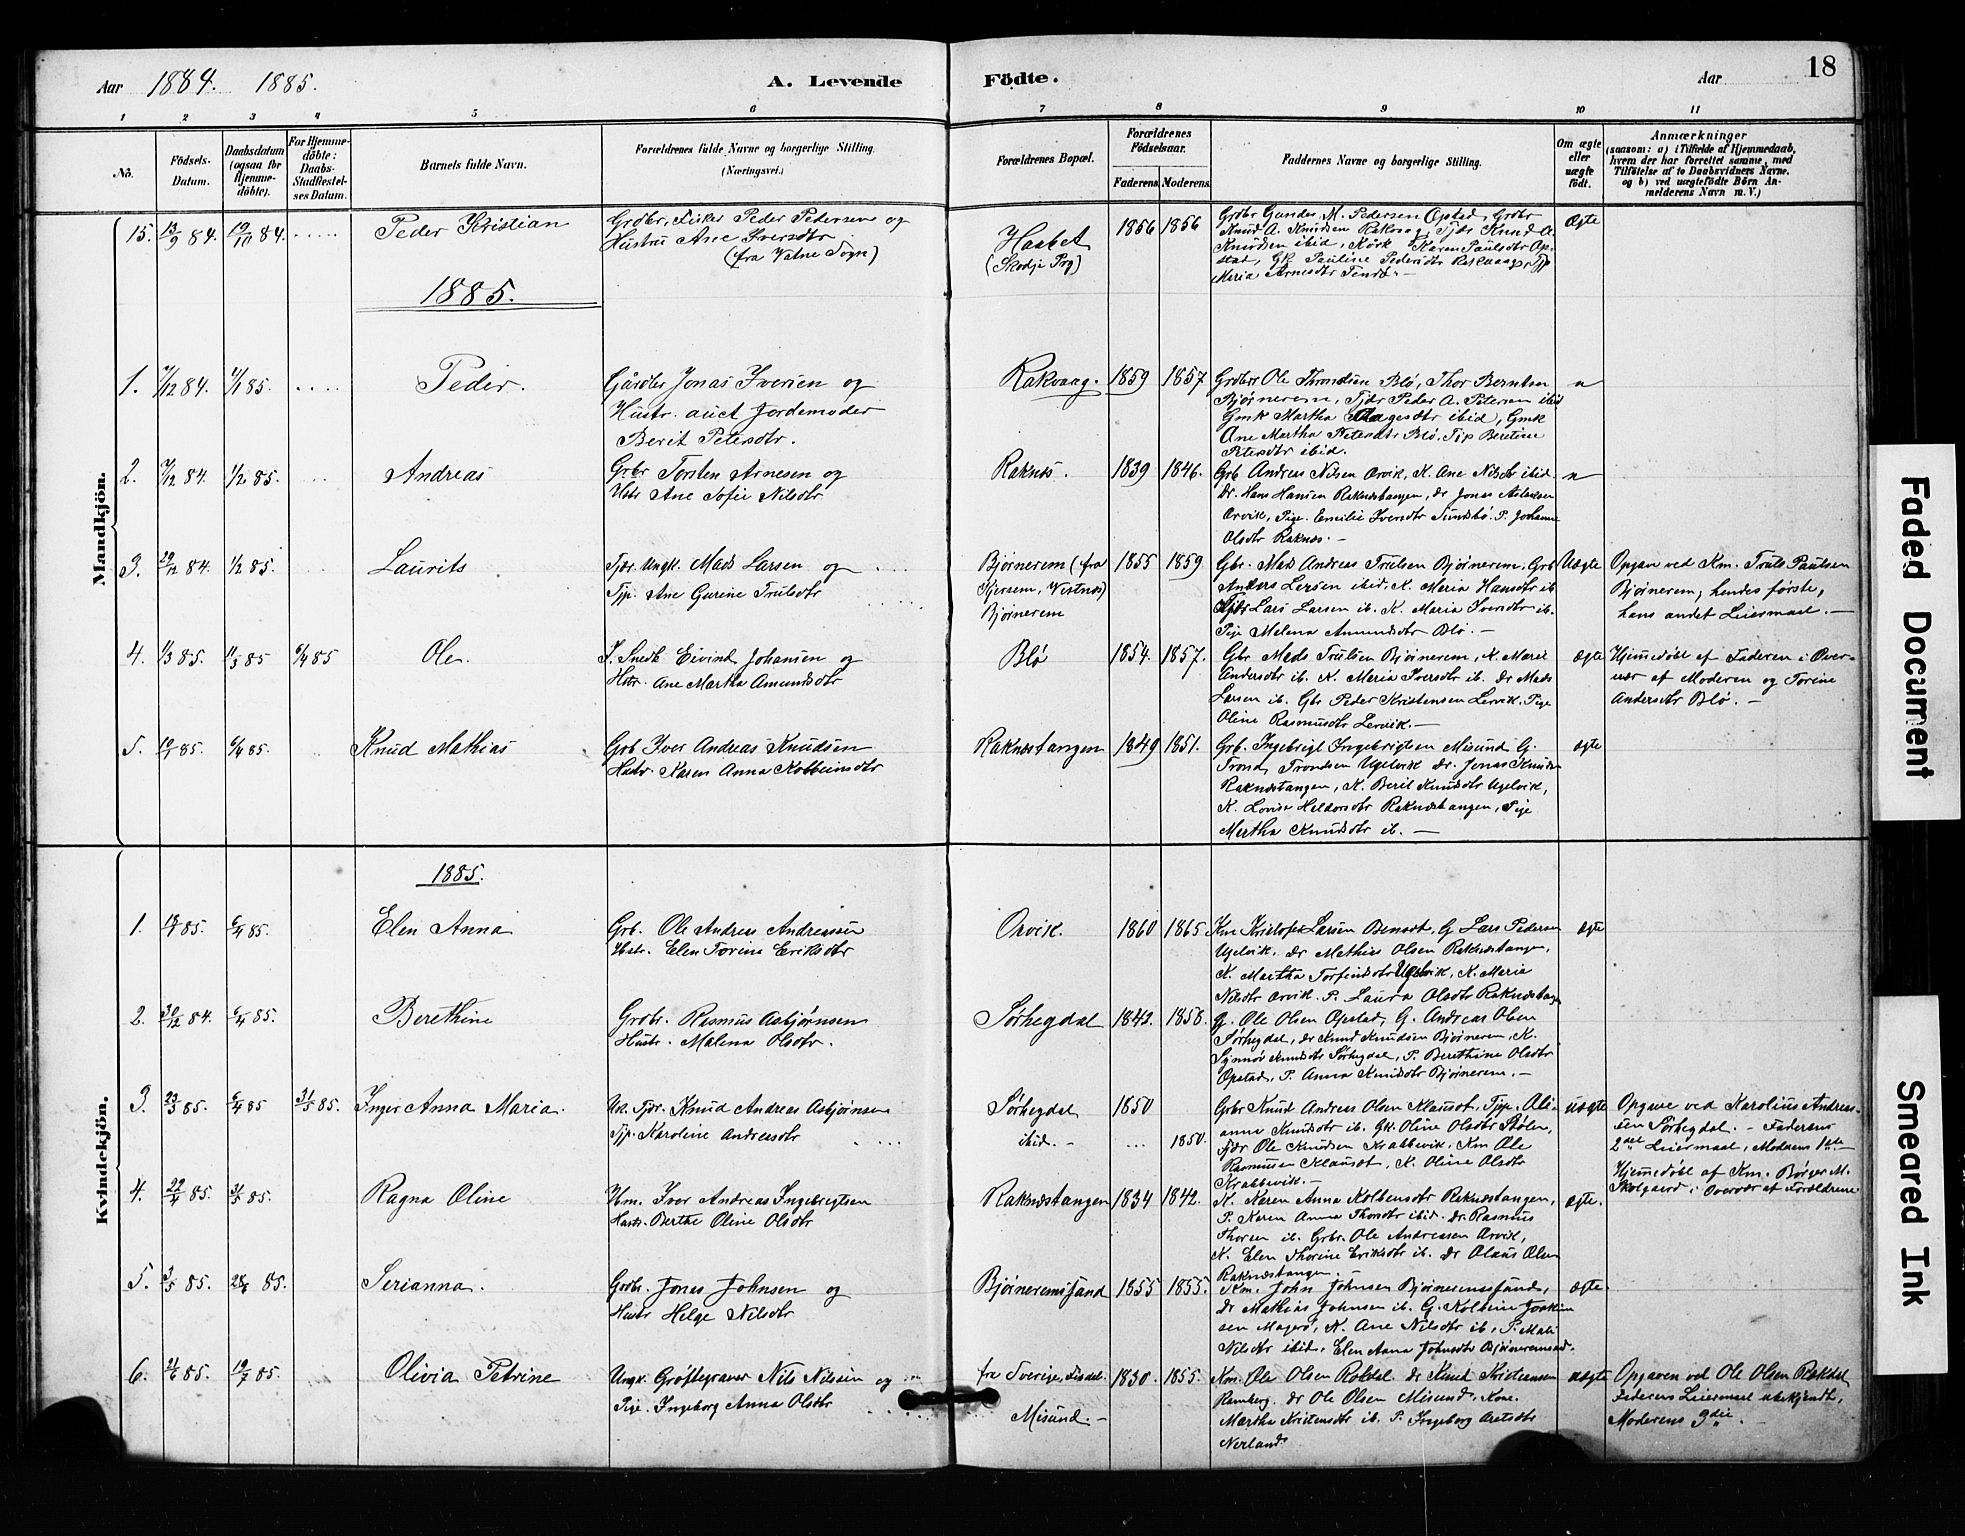 Aar 1884. 1885. A. Levende Födte. Aar 18
1 2 3 4 5 6 7 8 9 10 11
No.
Födsels-
Datum.
Daabsdatum
(ogsaa for
Hjemme-
döbte).
For Hjemme-
döbte:
Daabs-
Stadfæstel-
ses Datum.
Barnets fulde Navn.
Forældrenes fulde Navne og borgerlige Stilling.
(Næringsvei.)
Forældrenes Bopæl.
Forældrenes
Födselsaar.
Faderens. Moderens.
Faddernes Navne og borgerlige Stilling.
Om ægte
eller
uægte
födt.
Anmærkninger
(saasom: a) i Tilfælde af Hjemmedaab,
hvem der har forrettet samme, med
Tilföielse af to Daabsvidners Navne,
og b) ved uægtefödte Börn An-
melderens Navn m. V.)
Mandkjön.
15. 13/9 84. 19/10 84. Peder Kristian
Grdbr. Fisker Peder Pedersen og
Hustru Ane Iversdtr
(fra Vatne Sogn)
Haabet
(Skodje Prg)
1856 1856
Grdbr Gunder M. Pedersen Opstad, Grdbr
Knud A. Knudsen Rakvaag, Tjdr Knud A.
Knudsen ibid, Kårk Karen Paulsdtr Op-
stad, Gk Pauline Pedersdtr Rakvaag, Tjp
Maria Arnesdtr
Ægte
1885.
1. 7/12 84. 4/1 85. Peder.
Gårdbr Jonas Iversen og
Hustr. auct Jordemoder
Berit Petersdtr.
Rakvaag.
1859 1857
Grdbr Ole Throndsen Blö, Thor Berntsen
Bjørnerem, Tjdr Peder A. Petersen ibid
Gmk Martha Aagesdtr ibid, Gmk
Ane Martha Petersdtr Blö, Tjp Beretine
Petersdtr ibid.
2. 7/12 84. 1/2 85. Andreas
Grbr Torsten Arnesen og
Hstr Ane Sofie Nilsdtr
Raknæs.
1839 1846.
Grb Andreas Nilsen Orvik, K. Ane Nilsdtr ibid.
dr. Hans Hansen Raknæstangen, dr Jonas
Orvik, Pige Emilie Iversdtr Sundsbö. P. Johanne
Olsdtr Raknæs. —
3. 29/12 84. 1/2 85. Laurits
Tjdr. Ungk. Mads Larsen og
Tjp. Ane Gurine Trulsdtr
Bjørnerem (fra
Gjersem, Vestnes)
Bjørnerem
1855 1859
Gbr. Mads Andreas Trulsen Bjørnerem, Grb
Anders Larsen ibid, K. Maria Hansdtr ib
Tjdr Lars Larsen ib. K. Maria Iversdtr ib.
Pige Malena Amundsdtr Blö. —
Uægte
Opgav ved Km. Truls Paulsen
Bjørnerem, hendes første,
hans andet Leiermaal. —
4. 1/3 85. 11/3 85 6/4 85 Ole.
I. Snedk Eivind Johansen og
Hstr. Ane Martha Amundsdtr
Blö
1854. 1857.
Gbr Mads Trulsen Bjørnerem, K. Marit
Andersdtr ib. K. Maria Iversdtr ib. dr Mads
Larsen ib. Gbr Peder Kristensen Lervik, Pige
Oline Rasmusdtr Lervik. —
ægte
Hjemmedöbt af Faderen i Over-
vær af Moderen og Torine
Andersdtr Blö. —
5. 85. 6/4 85. Knud Mathias
Grb Iver Andreas Knudsen
Hustr. Karen Anna Kolbeinsdtr
Raknæstangen
1849 1851.
Grb. Ingebrigt Ingebrigtsen Misund G.
Trond Trondsen Ugelvik dr. Jonas Knudsen
Raknæstangen, K. Beril Knudsdtr Ugelvik,
K. Lovise Heldorsdtr Raknæstangen, Pige
Martha Knudsdtr ib. —
ægte
Kvindekjön.
1885.
1. 85. 6/4 85. Elen Anna
Grb. Ole Andreas Andreassen
Hstr. Elen Torina Eriksdtr
Orvik.
1860 1865
Km Kristofer Larsen Bensæt, G Lars Pedersen
Ugelvik, dr Mathias Olsen Raknæstangen,
K. Martha Torfinsdtr Ugelvik, K. Maria
Nilsdtr Orvik. P. Laura Olsdtr Raknæstangen
ægte
2. 30/12 84. 6/4 85. Berethine
Grdbr. Rasmus Asbjørnsen
Hustr. Malena Olsdtr.
Sørhegdal
1842. 1856.
G. Ole Olsen Opstad, G. Andreas Olsen
Sørhegdal, dr Knud Knudsen Bjørnerem, K.
Synnöv Knudsdtr Sørhegdal, P. Berethine Olsdtr
Opstad, P. Anna Knudsdtr Bjørnerem. —
3. 23/3 85. 6/4 85 31/5 85. Inger Anna Maria.
Uk. Tjdr. Knud Andreas Asbjørnsen
Tjp. Karoline Andreasdtr
Sørhegdal
ibid. —
1850
1850.
Grbr Knud Andreas Olsen Klauset. Tjp. Oli-
anne Knudsdtr ib. Gk. Oline Olsdtr Stölen,
Tjdr Ole Knudsen Krabbevik, Km Ole
Rasmussen Klauset, K. Oline Olsdtr
Krabbevik. —
uægte
Opgave ved Karolius Andreas-
sen Sørhegdal. — Faderens
2det Leiermaal, Moderens 1ste
Hjemmedöbt af Km. Børger M.
Skolgaard i Overvær af Forældrene
4. 22/4 85. 31/5 85. Ragna Oline
Hm. Iver Andreas Ingebrigtsen
Hustr. Berthe Oline Olsdtr
Raknæstangen
1834 1842.
K. Karen Anna Kolbensdtr Raknæstangen,
P. Karen Anna Thorsdtr ibid. dr. Rasmus
Thorsen ib. Grbr. Ole Andreasen Orvik,
K. Elen Thorine Eriksdtr ib. dr Olaus Olsen
Raknæstangen. —
ægte.
5. 3/5 85. 28/6 85. Serianna.
Grdbr. Jonas Johnsen og
Hustr Helge Nilsdtr
Bjørneremssand
1855 1855.
Km. John Johnsen Bjørneremssand,
dr Mathias Johnsen ib. G. Kolbein Joakim-
sen Magerö, K. Ane Nilsdtr ib, P. Mali
Nilsdtr ibid. Elen Anna Johnsdtr Bjørneremssand.
ægte
6. 21/6 85. 19/7 85. Olivia Petrine
Ungk. Grøftegraver Nils Nilsen og
Pige. Ingeborg Anna Olsdtr
fra Sverige,
Misund. —
1830. 1855.
Km. Ole Olsen Rökdal dr Knud Kristiansen
Ramberg. dr Ole Olsen Misund, Kone
Martha Kristensdtr ib. P. Ingeborg Aretsdtr
Nerland.
uægte
Opgaven ved Ole Olsen Rökdal
Faderens Leiermaal ubekjendt,
Moderens 3die.
Faded Document
Smeared Ink